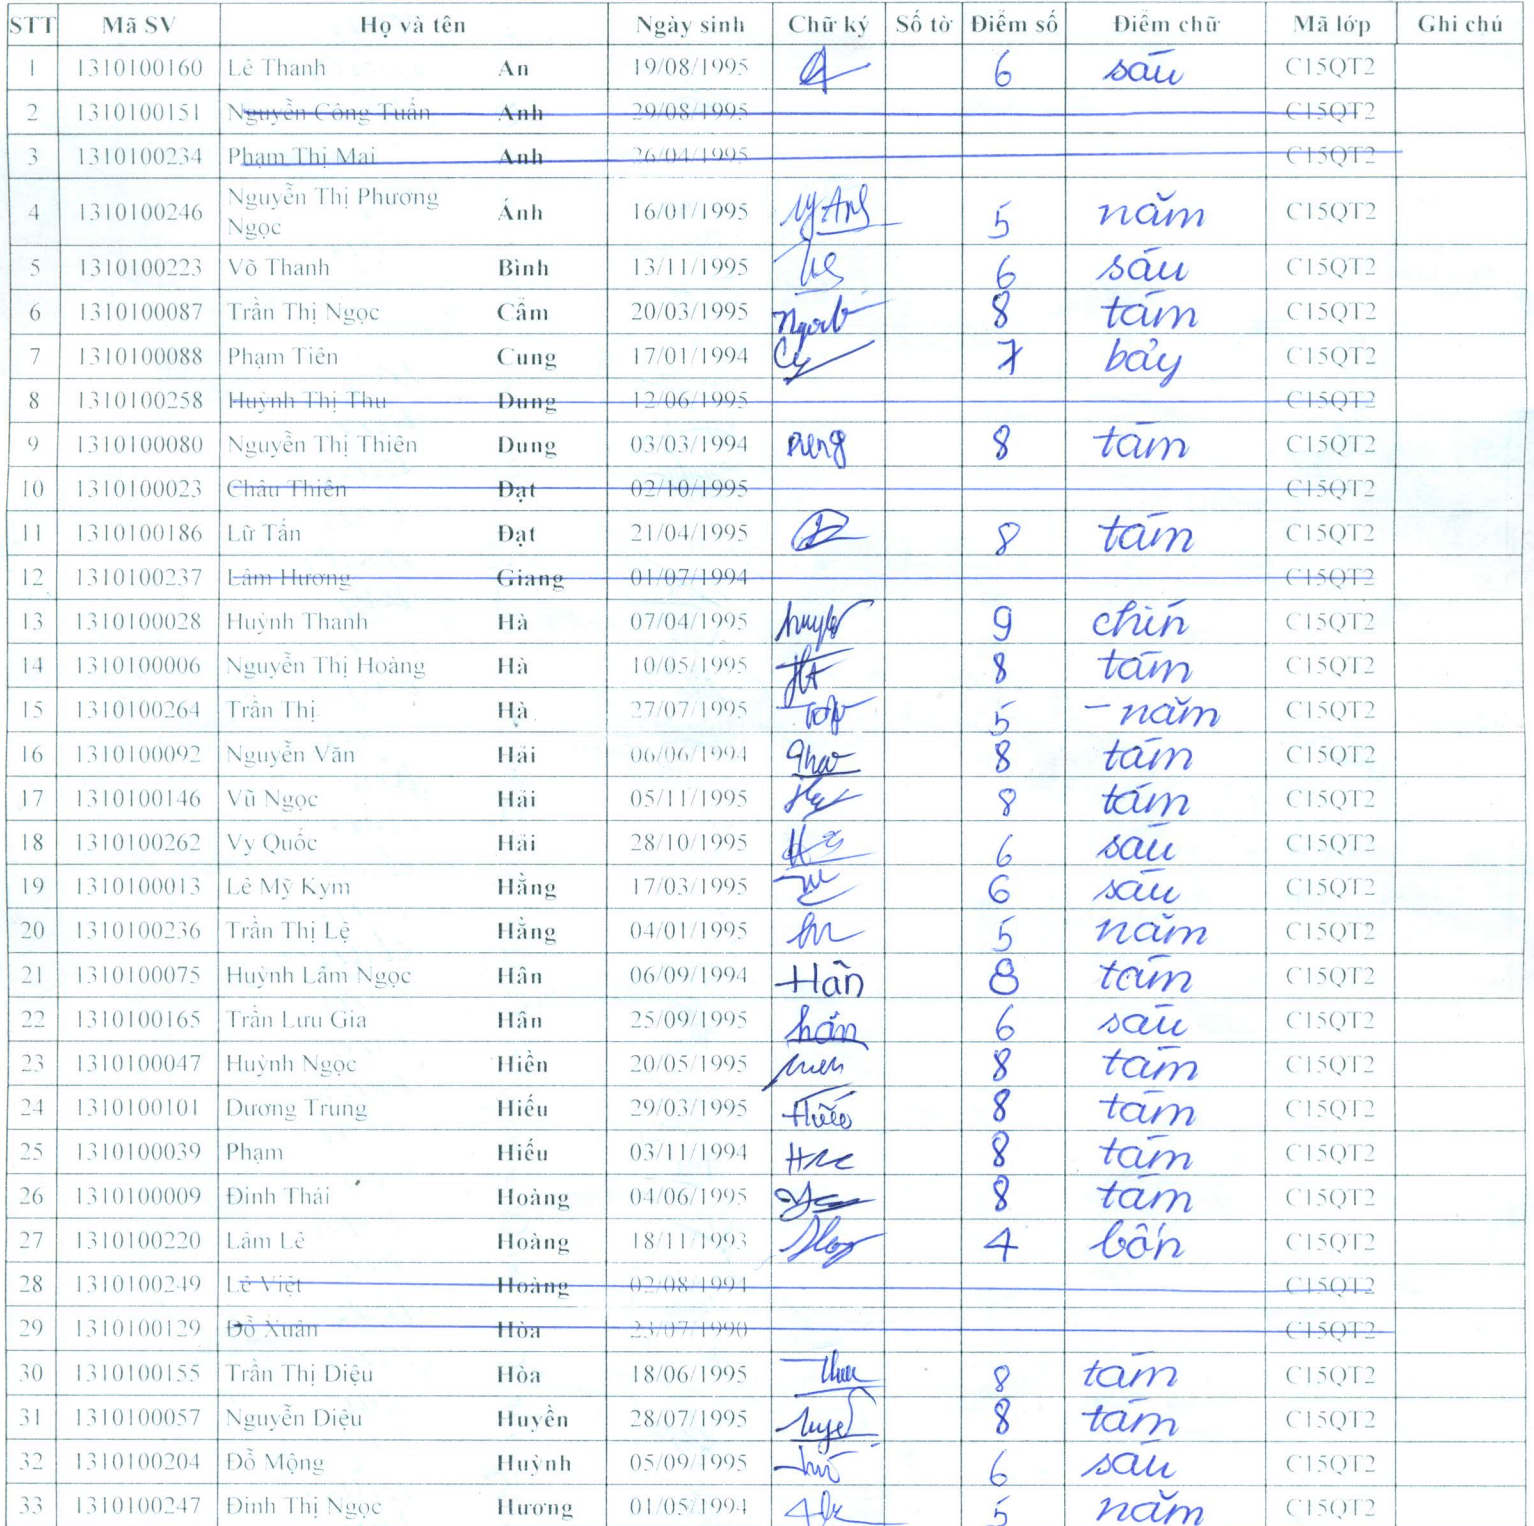 STT Mã SV Họ và tên Ngày sinh Chữ ký Số tờ Điểm số Điểm chữ Mã lớp Ghi chú
1 1310100160 Lê Thanh An 19/08/1995 6 sáu C15QT2
2 1310100151 Nguyễn Công Tuấn Anh 29/08/1995 C15QT2
3 1310100234 Phạm Thị Mai Anh 26/04/1995 C15QT2
4 1310100246 Nguyễn Thị Phương Ngọc Ánh 16/01/1995 5 năm C15QT2
5 1310100223 Võ Thanh Bình 13/11/1995 6 sáu C15QT2
6 1310100087 Trần Thị Ngọc Cẩm 20/03/1995 8 tám C15QT2
7 1310100088 Phạm Tiên Cung 17/01/1994 7 bảy C15QT2
8 1310100258 Huỳnh Thị Thu Dung 12/06/1995 C15QT2
9 1310100080 Nguyễn Thị Thiên Dung 03/03/1994 8 tám C15QT2
10 1310100023 Châu Thiên Đạt 02/10/1995 C15QT2
11 1310100186 Lữ Tấn Đạt 21/04/1995 8 tám C15QT2
12 1310100237 Lâm Hương Giang 01/07/1994 C15QT2
13 1310100028 Huỳnh Thanh Hà 07/04/1995 9 chín C15QT2
14 1310100006 Nguyễn Thị Hoàng Hà 10/05/1995 8 tám C15QT2
15 1310100264 Trần Thị Hạ 27/07/1995 5 - năm C15QT2
16 1310100092 Nguyễn Văn Hải 06/06/1994 8 tám C15QT2
17 1310100146 Vũ Ngọc Hải 05/11/1995 8 tám C15QT2
18 1310100262 Vy Quốc Hải 28/10/1995 6 sáu C15QT2
19 1310100013 Lê Mỹ Kym Hằng 17/03/1995 6 sáu C15QT2
20 1310100236 Trần Thị Lệ Hằng 04/01/1995 5 năm C15QT2
21 1310100075 Huỳnh Lâm Ngọc Hân 06/09/1994 Hân 8 tám C15QT2
22 1310100165 Trần Lưu Gia Hân 25/09/1995 hân 6 sáu C15QT2
23 1310100047 Huỳnh Ngọc Hiền 20/05/1995 8 tám C15QT2
24 1310100101 Dương Trung Hiếu 29/03/1995 Hiếu 8 tám C15QT2
25 1310100039 Phạm Hiếu 03/11/1994 8 tám C15QT2
26 1310100009 Đinh Thái Hoàng 04/06/1995 8 tám C15QT2
27 1310100220 Lâm Lê Hoàng 18/11/1993 4 bốn C15QT2
28 1310100249 Lê Việt Hoàng 02/08/1994 C15QT2
29 1310100129 Đỗ Xuân Hòa 23/07/1990 C15QT2
30 1310100155 Trần Thị Diệu Hòa 18/06/1995 8 tám C15QT2
31 1310100057 Nguyễn Diệu Huyền 28/07/1995 8 tám C15QT2
32 1310100204 Đỗ Mộng Huỳnh 05/09/1995 6 sáu C15QT2
33 1310100247 Đinh Thị Ngọc Hương 01/05/1994 5 năm C15QT2